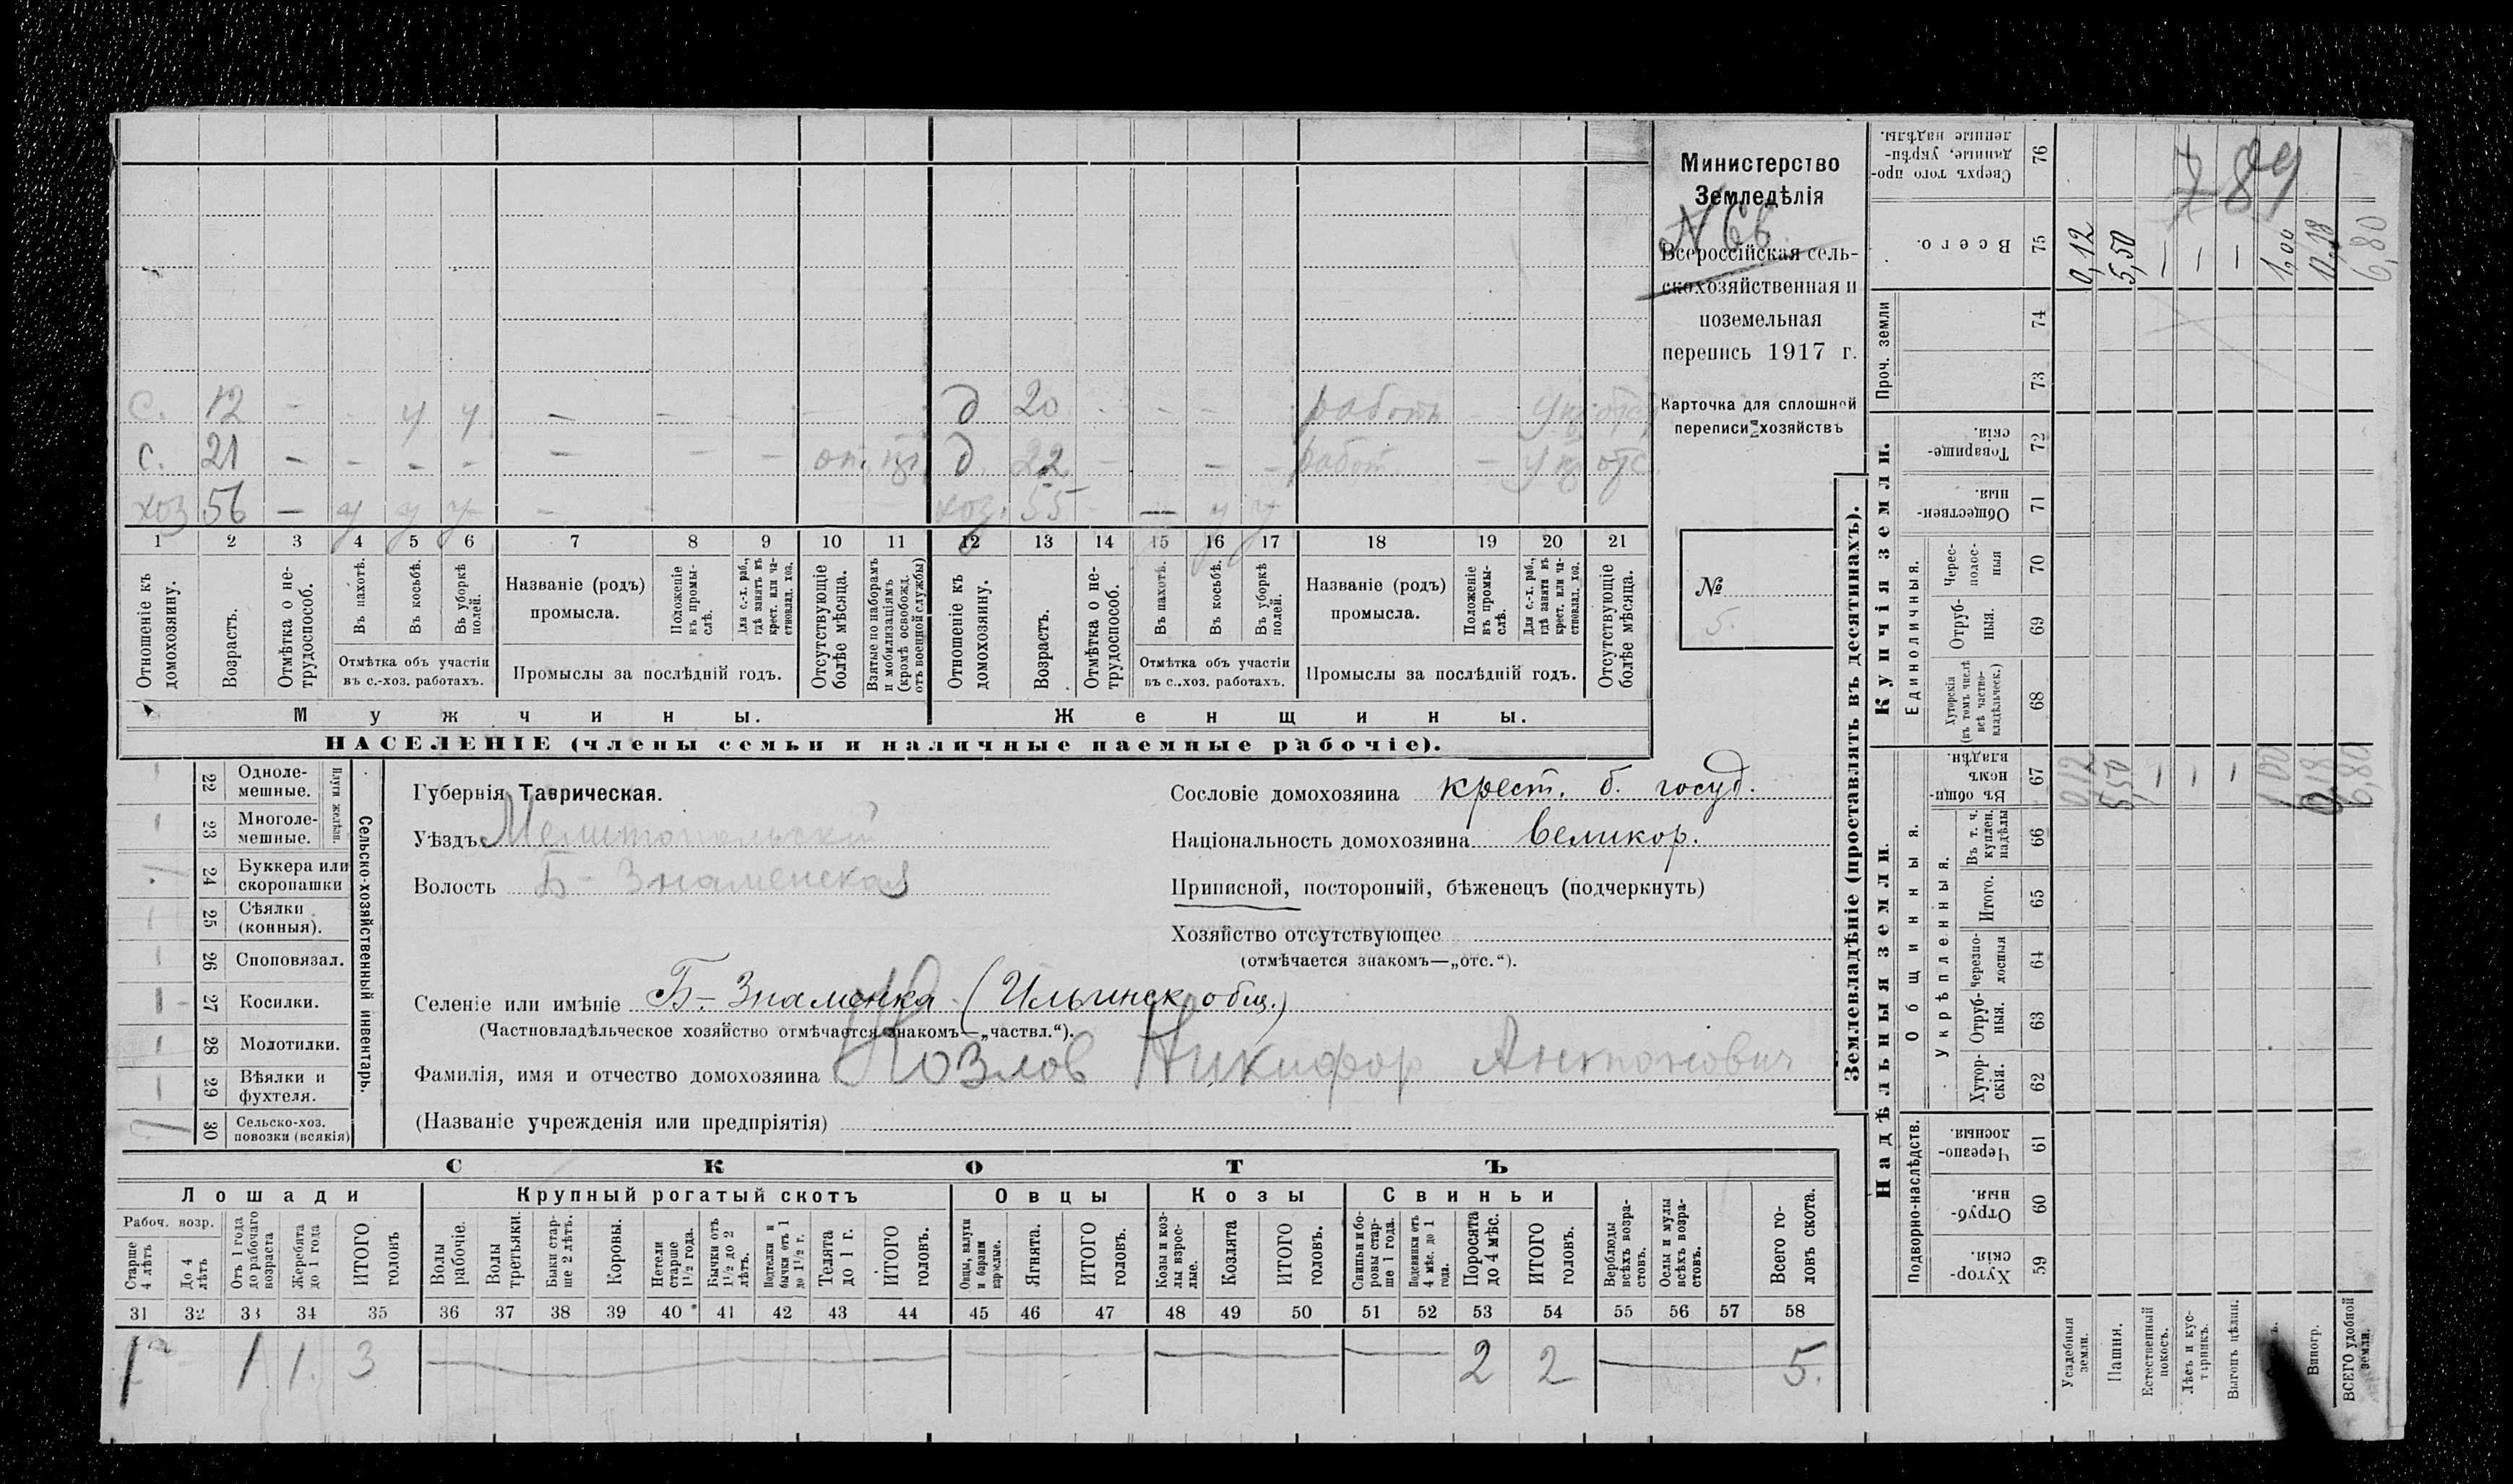 Министерство
Земледѣлія
N 66
Всероссійская сель-
скохозяйственная и
поземельная
перепись 1917 г.
Карточка для сплошной
переписи хозяйствъ
№
5.
с. 12 – - у у – – – д 20 - - - работ – отс.
с. 21 – - - - – – – от. д. 22 - - - работ – отс.
хоз 56 – у у у - - хоз. 55 - — у у
1 2 3 4 5 6 7 8 9 10 11 12 13 14 15 16 17 18 19 20 21
Отношеніе къ домохозяину.
Возрастъ.
Отмѣтка о не-трудоспособ.
Въ пахотѣ.
Въ косьбѣ.
Въ уборкѣ полей.
Отмѣтка объ участіи
въ с.-хоз. работахъ.
Названіе (родъ)
промысла.
Положеніе въ промы-слѣ.
Для с.-х. раб., гдѣ занятъ въ крест. или ча-стновлад. хоз.
Промыслы за послѣдній годъ.
Отсутствующіе болѣе мѣсяца.
Взятые по наборамъ и мобилизаціямъ (кромѣ освобожд. отъ военной службы)
Отношеніе къ домохозяину.
Возрастъ.
Отмѣтка о не-трудоспособ.
Въ пахотѣ.
Въ косьбѣ.
Въ уборкѣ полей.
Отмѣтка объ участіи
въ с..хоз. работахъ.
Названіе (родъ)
промысла.
Положеніе въ промы-слѣ.
Для с.-х. раб., гдѣ занята въ крест. или ча-стновлад. хоз.
Промыслы за послѣдній годъ.
Отсутствующіе болѣе мѣсяца.
Мужчины.
Женщины.
НАСЕЛЕНІЕ (члены семьи и наличные наемные рабочіе).
22 Одноле-мешные.
23 Многоле-мешные.
Плуги желѣзн.
24 Буккера или скоропашки
25 Сѣялки (конныя).
26 Сноповязал.
27 Косилки.
28 Молотилки.
29 Вѣялки и фухтеля.
30 Сельско-хоз. повозки (всякія)
Сельско-хозяйственный инвентарь.
Губернія Таврическая.
Уѣздъ Мелитопольскій
Волость Б- Знаменская
Сословіе домохозяина крест. б. госуд.
Національность домохозяина великор.
Приписной, посторонній, бѣженецъ (подчеркнуть)
Хозяйство отсутствующее
(отмѣчается знакомъ—„отс.“).
Селеніе или имѣніе Б.- Знаменка (Ильинск. общ.)
(Частновладѣльческое хозяйство отмѣчается знакомъ—„частвл.“).
Фамилія, имя и отчество домохозяина Козлов Никифор Антонович
(Названіе учрежденія или предпріятія)
СКОТЪ
Лошади
Крупный рогатый скотъ
Овцы
Козы
Свиньи
Рабоч. возр.
Старше 4 лѣтъ
До 4 лѣтъ
Отъ 1 года до рабочаго возраста
Жеребята до 1 года
ИТОГО головъ
Волы рабочіе.
Волы третьяки.
Быки стар-ше 2 лѣтъ.
Коровы.
Нетели старше 1½ года.
Бычки отъ 1½ до 2 лѣтъ.
Подтелки и бычки отъ 1 до 1½ г.
Телята до 1 г.
ИТОГО головъ.
Овцы, валухи и бараны взрослые.
Ягнята.
ИТОГО головъ.
Козы и коз-лы взрос-лые.
Козлята
ИТОГО головъ.
Свиньи и бо-ровы стар-ше 1 года.
Подсвинки отъ 4 мѣс. до 1 года.
Поросята до 4 мѣс.
ИТОГО головъ.
Верблюды всѣхъ возра-стовъ.
Ослы и мулы всѣхъ возра-стовъ.
Всего го-ловъ скота.
31 32 33 34 35 36 37 38 39 40 41 42 43 44 45 46 47 48 49 50 51 52 53 54 55 56 57 58
1 1 1. 3 2 2 5.
Землевладѣніе (проставлять въ десятинахъ).
Надѣльныя земли.
Купчія земли.
Проч. земли
Подворно-наслѣдств.
Общинныя.
Укрѣпленныя.
Единоличныя.
Сверхъ того про-данные, укрѣп-ленные надѣлы. 76
Всего. 75
74
73
Товарище-скія. 72
Обществен-ныя. 71
Черес-полос-ныя 70
Отруб-ныя. 69
Хуторскія (въ томъ числѣ всѣ частно-владѣльческ.) 68
Въ общин-номъ владѣн. 67
Въ т. ч. куплен. надѣлы 66
Итого. 65
черезпо-лосныя 64
Отруб-ныя. 63
Хутор-скія. 62
Черезпо-лосныя. 61
Отруб-ныя. 60
Хутор-скія. 59
Усадебныя земли.
Пашня.
Естественный покосъ.
Лѣсъ и кус-тарникъ.
Выгонъ цѣлин.
Виногр.
ВСЕГО удобной земли.
789
0,12 5,50 – – – 1,00 0,18 6,80
0,12 5,50 – – – 1,00 0,18 6,80